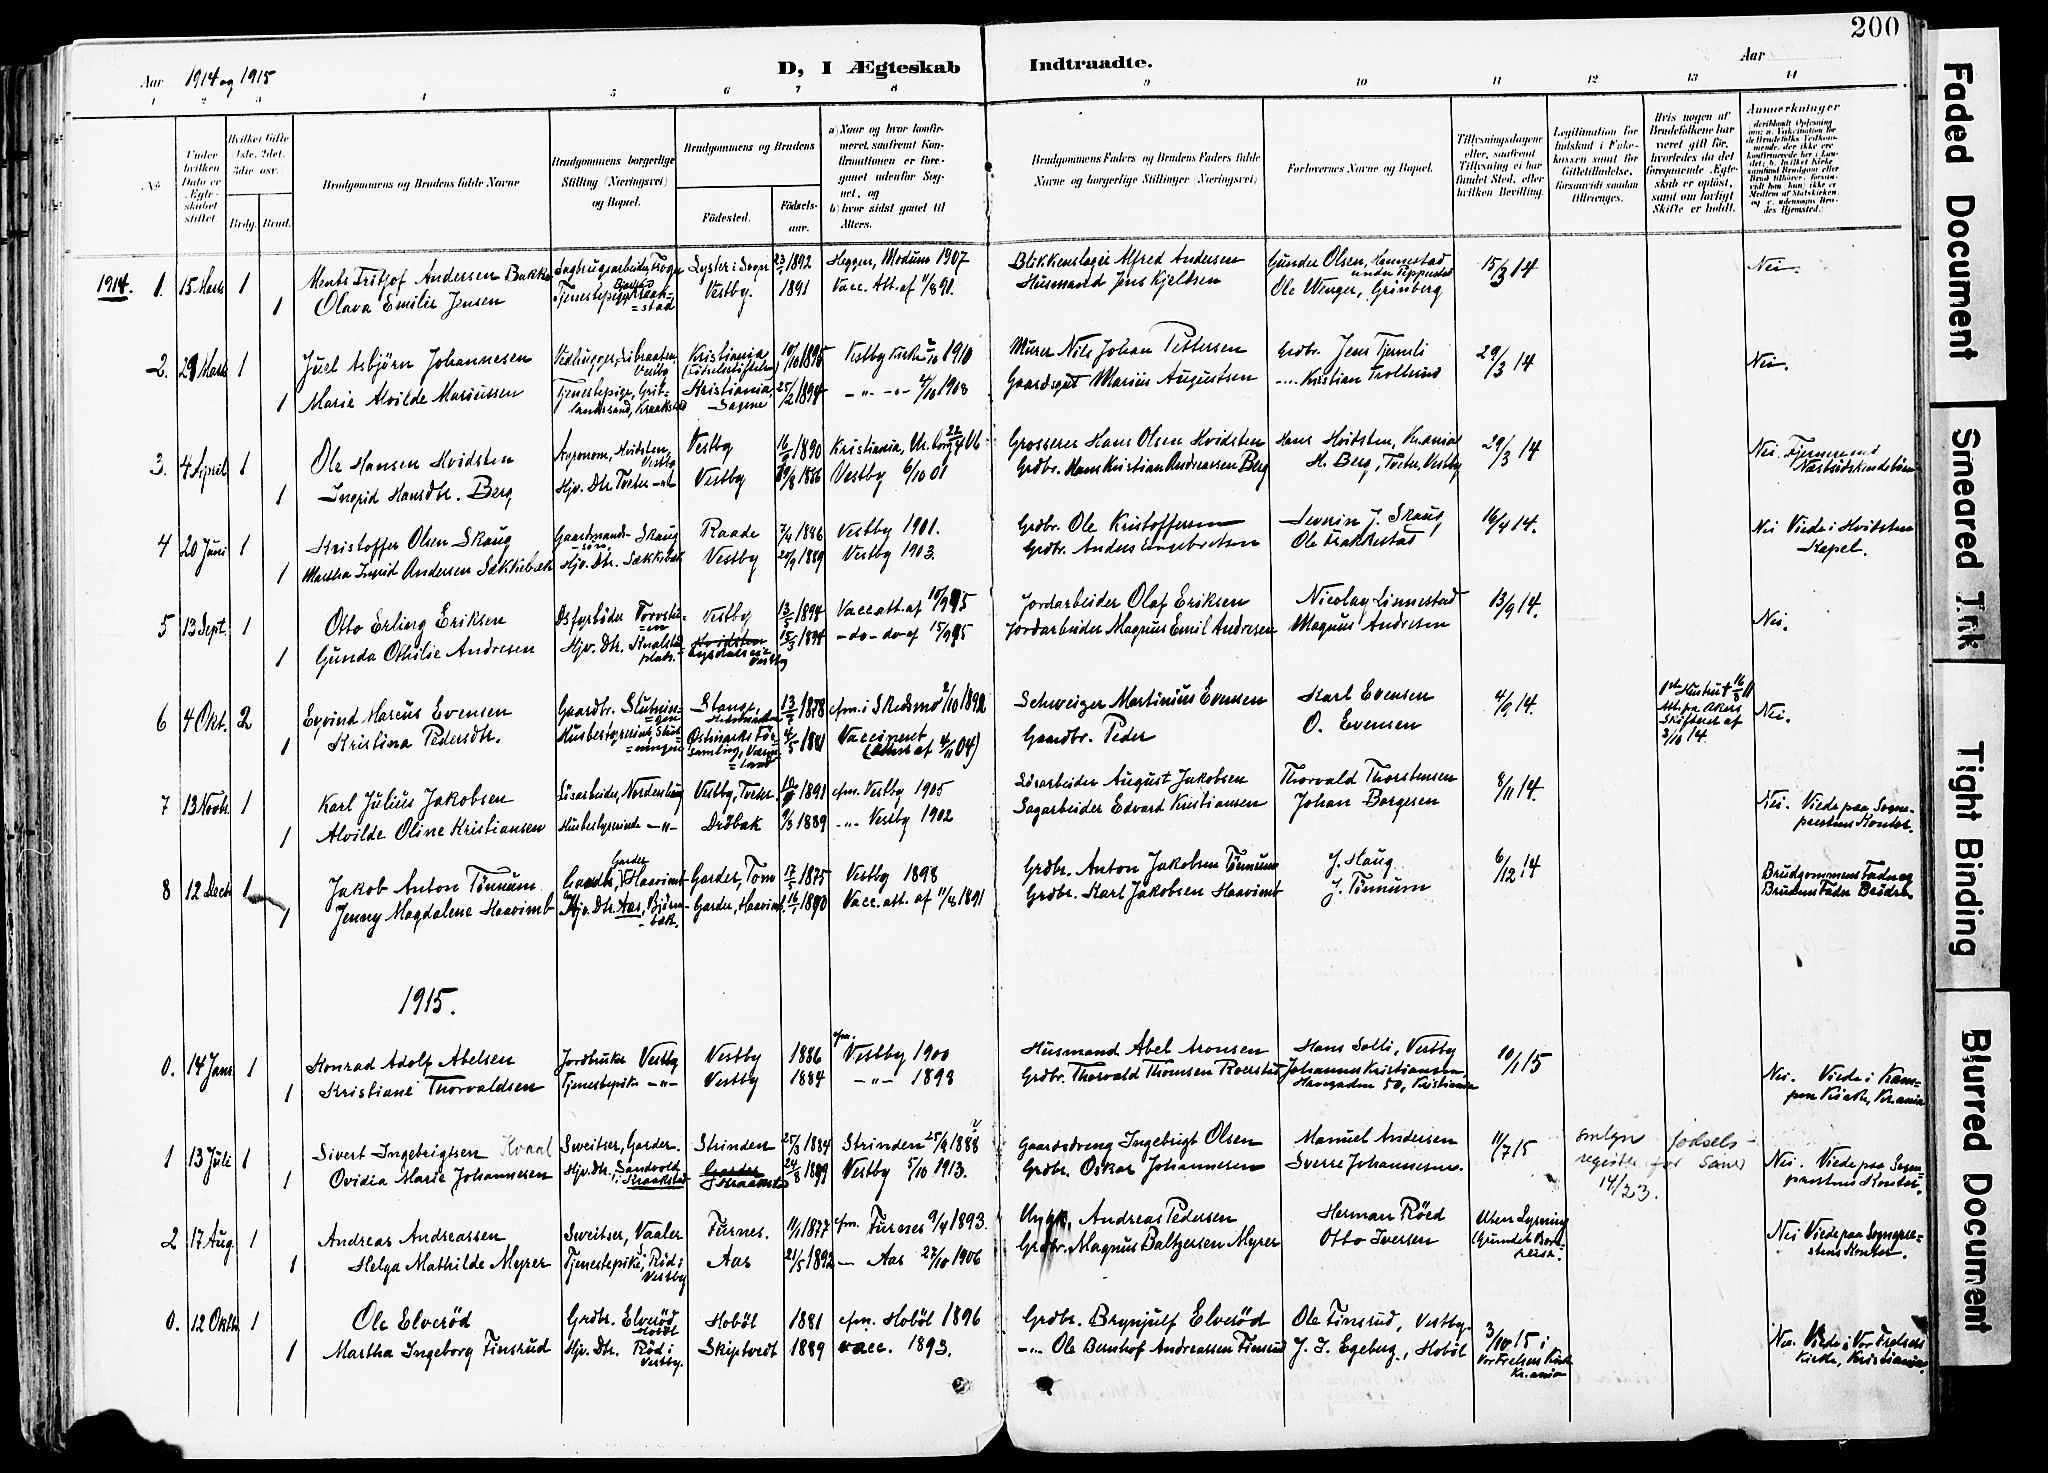 200
Aar 1914 og 1915
D, I Ægteskab Indtraadte.
Aar
1 2 3 4 5 6 7 8 9 10 11 12 13 14
No.
Under hvilken Dato er Ægteskabet stiftet.
Hvilket Gifte 1ste, 2det, 3die osv.
Brdg. Brud.
Brudgommens og Brudens fulde Navne
Brudgommens borgerlige Stilling (Næringsvei) og Bopæl.
Brudgommens og Brudens
Fødested.
Fødselsaar.
a) Naar og hvor konfirmeret, saafremt Konfirmationen er foregaaet udenfor Sognet, og
b) hvor sidst gaaet til Alters.
Brudgommens Faders og Brudens Faders fulde Navne og borgerlige Stillinger (Næringsvei)
Forlovernes Navne og Bopæl.
Tillysningsdagene eller, saafremt Tillysning ei har fundet Sted, efter hvilken Bevilling.
Legitimation for Indskud i Enkekassen samt for Giftetilladelse, forsaavidt saadan tiltrænges.
Hvis nogen af Brudefolkene har været gift før, hvorledes da det foregaaende Ægteskab er opløst, samt om lovligt Skifte er holdt.
Anmærkninger
1914. 1. 15 Marts 1 Ments Fritjof Andersen Bakke Sagbrugsarbeider, Lyster i Sogn 23/ 1892 Heggen, Modum 1907 Blikkenslager Alfred Andersen Gunder Olsen, Hennestad under Peppestad 15/3 14 Nei.
1 Olava Emilie Jensen Tjenestepige, Kraakstad Vestby. 1891 Vacc. Att. af 11/8 91. Husmand Jens Kjeldsen Ole Wenger, Grønberg
2. 29 Marts 1 Juel Asbjørn Johannesen Vedhugger, Vestby Kristiania (Fødselsstiftelsen) 10/10 1895 Vestby Kirke 2/10 1910 Murer Nils Johan Pettersen Grdbr. Jens Tjernsli 29/3 14 Nei.
1 Marie Alvilde Mariussen Tjenestepige, Kraakstad Kristiania, Sagene 25/2 1894 -"- -"- 4/10 1908 Gaardsgut Marius Augustsen -"- Kristian Trollerud
3. 4 April 1 Ole Hansen Hvidsten Agronom, Hvidsten, Vestby Vestby 16/ 1890 Kristiania, 22/4 06 Grosserer Hans Olsen Hvidsten Hans Hvidsten, Kr.ania 29/3 14 Nei. Fjernere end Næstsødskendebørn
1 Ingrid Hansdtr. Berg Hjv. Dtr. Tveter -"- Vestby 19/8 1886 Vestby 6/10 01 Grdbr. Hans Kristian Andreassen Berg H. Berg, Tveter, Vestby
4 20 Juni 1 Kristoffer Olsen Skaug Gaardmandssøn Skaug Raade 7/4 1886 Vestby 1901. Grdbr. Ole Kristoffersen Severin J. Skaug 16/4 14. Nei Viede i Hvidsten Kapel.
1 Martha Ingrid Andersen Sækkebæk Hjv. Dtr. Sækkebæk Vestby 20/9 1889 Vestby 1903. Grdbr. Anders Engebretsen Ole Krakkestad
5 13 Sept. 1 Otto Erling Eriksen Vestby 13/5 1894 Vacc att. af 10/9 95 Jordarbeider Olaf Eriksen Nicolay Linnestad 13/9 14. Nei.
1 Gunda Othilie Andresen Hjv. Dtr. Vestby 15/3 1894 -do-do- af 15/9 95 Jordarbeider Magnus Emil Andresen Magnus Andresen
6 4 Okt. 2 Eyvind Marcus Evensen Gaardbr. Slutningen Stange, Hedemarken 13/ 1878 cfm. i Skedsmo 2/10 1892 Schweizer Martinius Evensen Karl Evensen 4/9 14. 1ste Hustru † 16/8 11 Att. fra Akers Skifteret af 3/10 14. Nei.
1 Kristina Pedersdtr. Husbestyrerinde, Slutningen Østmarks Församling, Värmland 4/5 1881 Vaccineret (Attest af 4/11 04) Gaardbr. Peder O. Evensen
7 13 Novbr. 1 Karl Julius Jakobsen Løsarbeider, Nordenskoug Vestby, Tveter. 12/9 1891 cfm. Vestby 1905 Løsarbeider August Jakobsen Thorvald Thorstensen 8/11 14. Nei. Viede paa Sogneprestens Kontor.
1 Alvilde Oline Kristiansen Husbestyrerinde -"- Drøbak 9/3 1889 -"- Vestby 1902 Sagarbeider Edvard Kristiansen Johan Borgersen
8 12 Decbr. 1 Jakob Anton Tønnum Gaardbr., Haavimb Garder Garder, Tom 17/5 1875 Vestby 1898 Grdbr. Anton Jakobsen Tønnum J. Haug 6/12 14 Brudgommens Fader og Brudens Fader Brødre.
1 Jenny Magdalene Haavimb Hjv. Dtr. Aas, Bjørnebæk. Garder, Haavimb 16/1 1890 Vacc. att. af 11/8 1891 Grdbr. Karl Jakobsen Haavimb J. Tønnum
1915.
0. 14 Jan. 1 Konrad Adolf Abelsen Jordbruker Vestby Vestby 1886 cfm. Vestby 1900 Husmand Abel Aronsen Hans Solli, Vestby 10/1 15 Nei. Viede i Kampen Kirke, Kr.ania
1 Kristiane Thorvaldsen Tjenestepike -"- Vestby 1884 -"- 1898 Grdbr. Thorvald Thomsen Roerstad Johannes Kristiansen 50, Kristiania
1 13 Juli 1 Sivert Ingebrigtsen Kvaal Sveitser, Garder. Strinden 25/3 1884 Strinden 25/9 1888 Gaardsdreng Ingebrigt Olsen Manuel Andersen 11/7 15 smlgn fødselsregister for Sand 14/2 53. Nei. Viede paa Sogneprestens Kontor.
1 Ovidia Marie Johannesen Hjv. dtr. Sandvold i Kraakstad Garder Kraakstad 24/8 1899 Vestby 5/10 1913. Grdbr. Oskar Johannesen Sverre Johannesen.
2 17 Aug. 1 Andreas Andreassen Sveitser, Vaaler Furnes. 11/1 1877 cfm. Furnes 9/4 1893. Andreas Pedersen Herman Røed Uten Lysning (Grundet Bortreise. Nei Viede paa Sogneprestens Kontor.
1 Helga Mathilde Meyer Tjenestepike, Rød i Vestby Aas 21/5 1892 - Aas 27/10 1906 Grdbr. Magnus Baltzersen Myrer Otto Iversen
0. 12 Oktbr. 1 Ole Elverød Grdbr. Elverød Hobøl Hobøl 1881 cfm. Hobøl 1896 Grdbr. Brynjulf Elverød Ole Finsrud, Vestby. 3/10 15 i Vor Frelsers Kirke Kr.ania Nei. Viede i Vor Frelsers Kirke, Kristiania.
1 Martha Ingeborg Finsrud Hjv. Dtr. Rød i Vestby. Skiptvedt 1889 vacc. 1893. -"- Ole Bernhof Andreassen Finsrud J. J. Egeberg, Hobøl
Faded Document
Smeared Ink
Tight Binding
Blurred Document